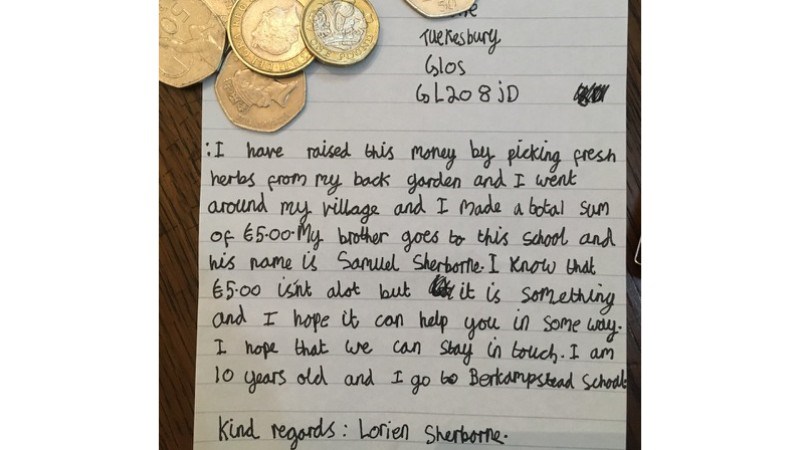 ONE POUND
Tuekesbury
Glos
GL20 8JD
:I have raised this money by picking fresh
herbs from my back garden and I went
around my village and I made a total sum
of £5.00. My brother goes to this school and
his name is Samuel Sherborne. I know that
£5.00 isnt alot but it is something
and I hope it can help you in some way.
I hope that we can stay in touch. I am
10 years old and I go to Berkampstead School
Kind regards: Lorien Sherborne.